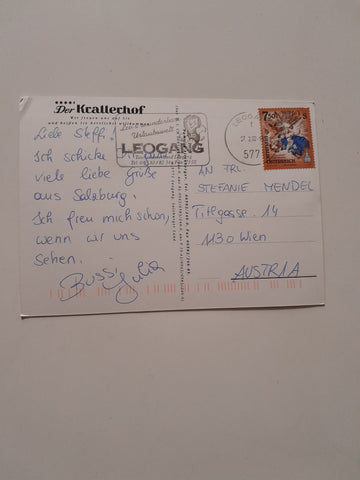 Der Krallerhof
Wir freuen uns auf Sie
und heißen Sie herzlichst willkommen
Leo's wunderbare
Urlaubswelt
LEOGANG
LEOGANG
577
7
S
ÖSTERREICH
Liebe Steffi!
Ich schicke Dir ganz
viele liebe Grüße
aus Salzburg.
Ich freu mich schon,
wenn wir uns
sehen.
Bussi Julia
AN FRL.
STEFANIE MENDEL
Titlgasse 14
1130 Wien
AUSTRIA